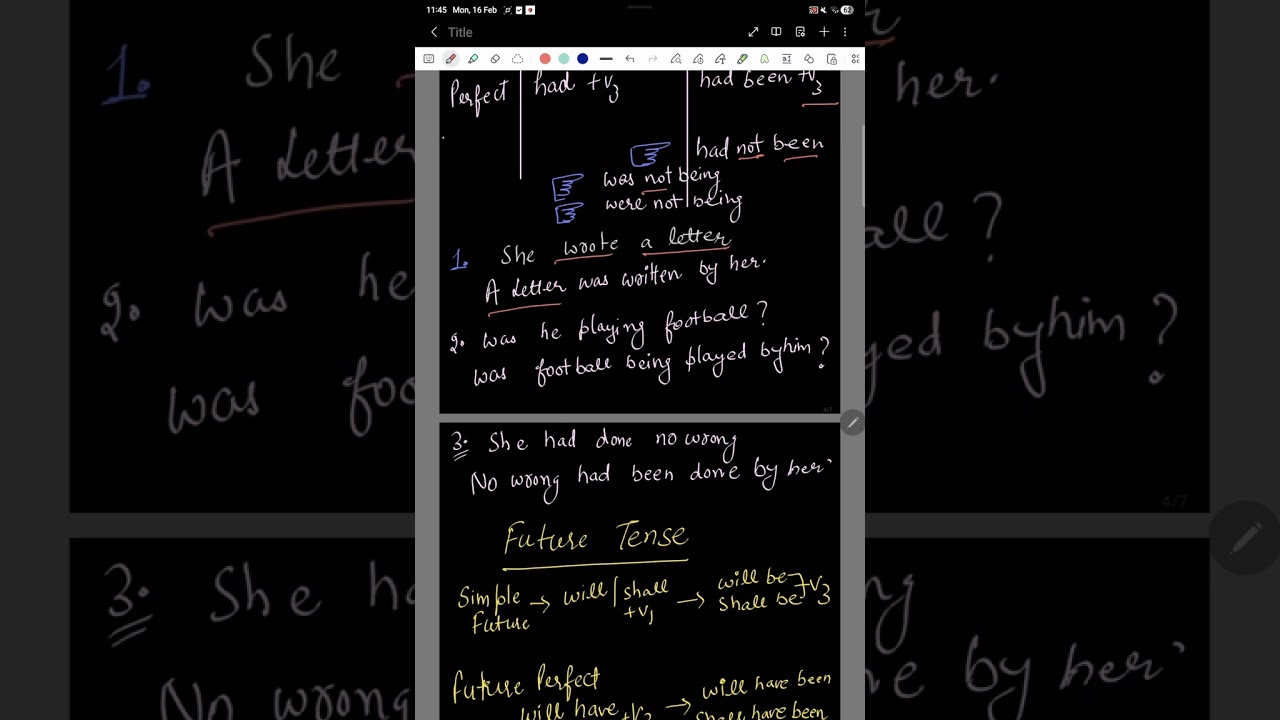 11:45 Mon, 16 Feb
62
Title
Perfect had +V3 had been +V3
had not been
was not being
were not being
1. She wrote a letter
A Letter was written by her.
2. was he playing football?
was football being played by him?
4/7
3. She had done no wrong
No wrong had been done by her.
Future Tense
Simple Future → will | shall +V1 → will be shall be +V3
Future Perfect
will have +V3 → will have been
shall have been
1. She
her.
A Letter
all?
2. was he
was foo
yed by him?
4/7
3. She h
ng
No wrong
e by her.